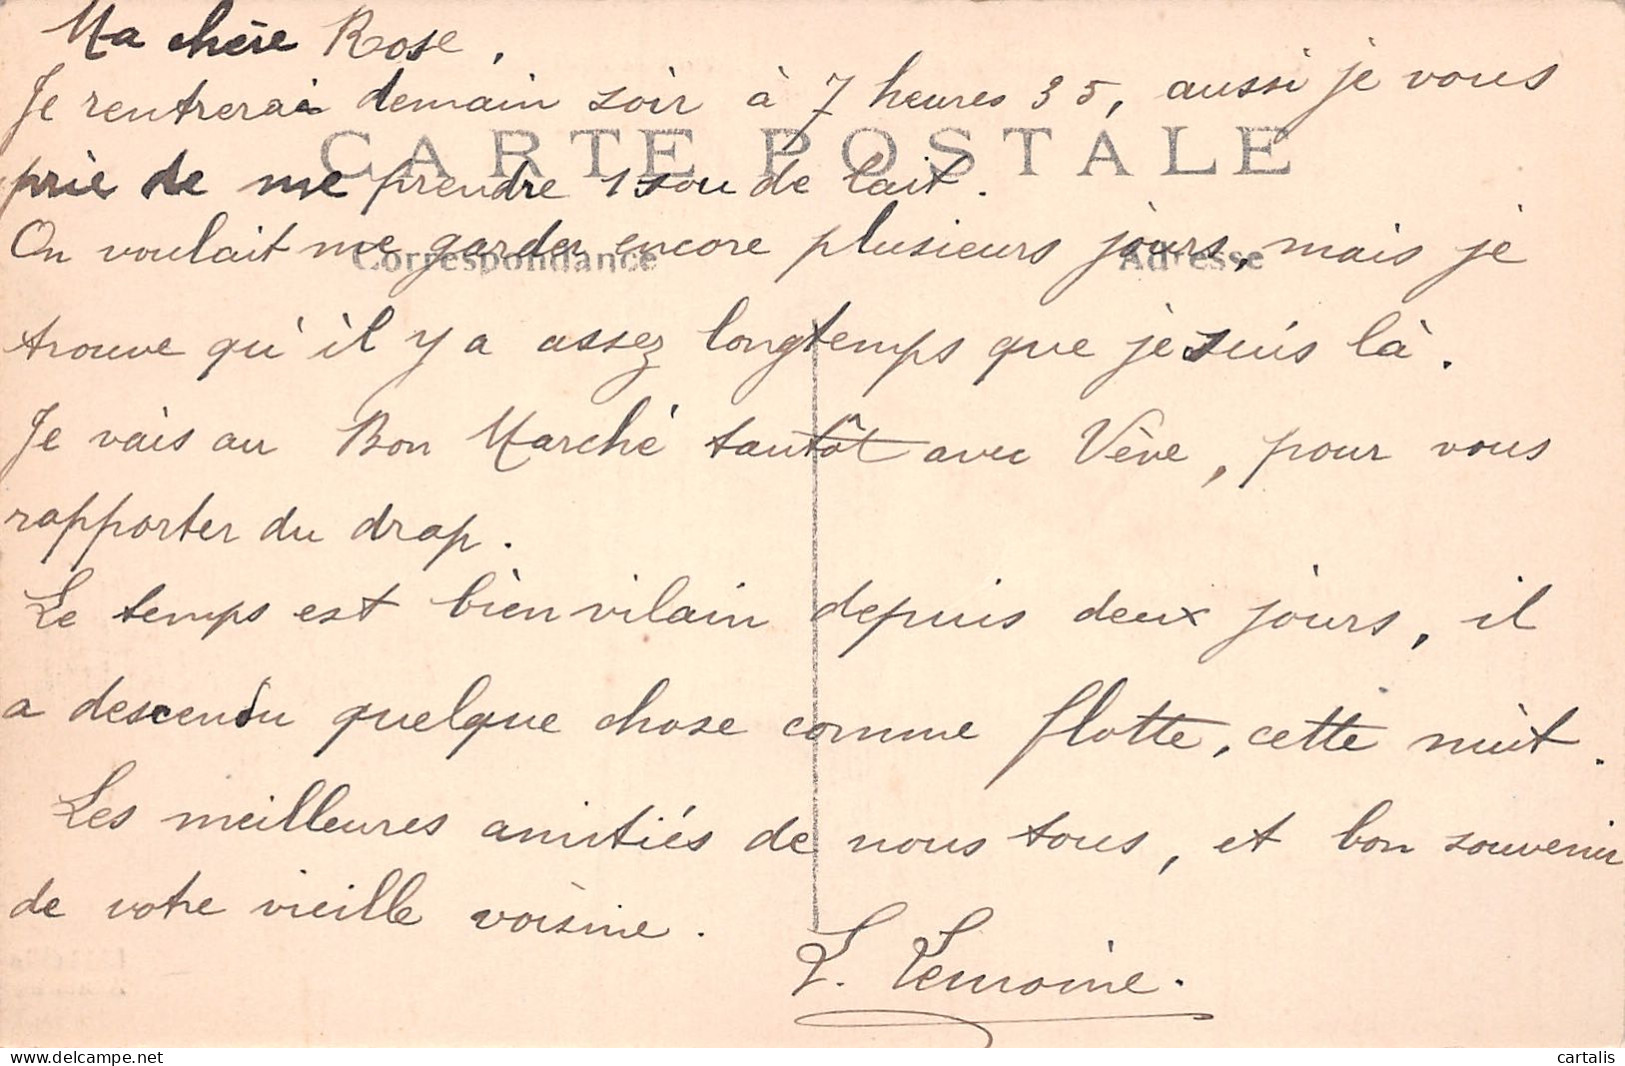 Ma chère Rose,
Je rentrerai demain soir à 7 heures 35, aussi je vous
CARTE POSTALE
prie de me prendre 1 sou de lait.
On voulait me garder encore plusieurs jours, mais je
Correspondance Adresse
trouve qu'il y a assez longtemps que je suis là.
Je vais au Bon Marché tantôt avec Vève, pour vous
rapporter du drap.
Le temps est bien vilain depuis deux jours, il
a descendu quelque chose comme flotte, cette nuit.
Les meilleures amitiés de nous tous, et bon souvenir
de votre vieille voisine.
L. Lemoine.
delcampe.net
cartalis